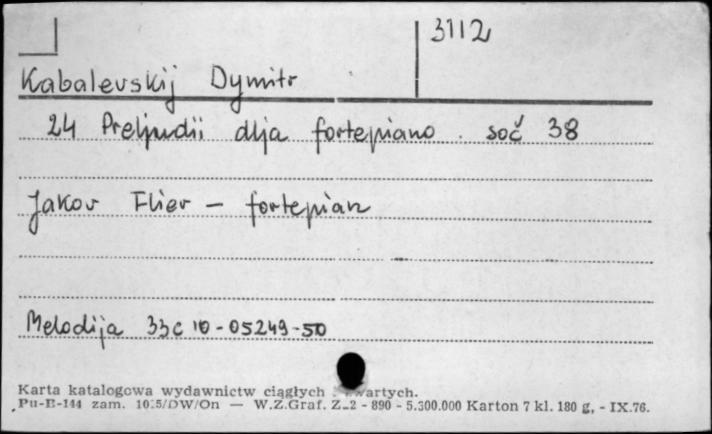 3112
Kabalevskij Dymitr
24 Preljudii dlja fortepiano. soč 38
Jakov Flier – fortepian
Melodija 33C 10-05249-50
Karta katalogowa wydawnictw ciągłych i zwartych.
Pu-E-144 zam. 1025/DW/On — W.Z.Graf. Z-2 - 890 - 5.300.000 Karton 7 kl. 180 g, - IX.76.